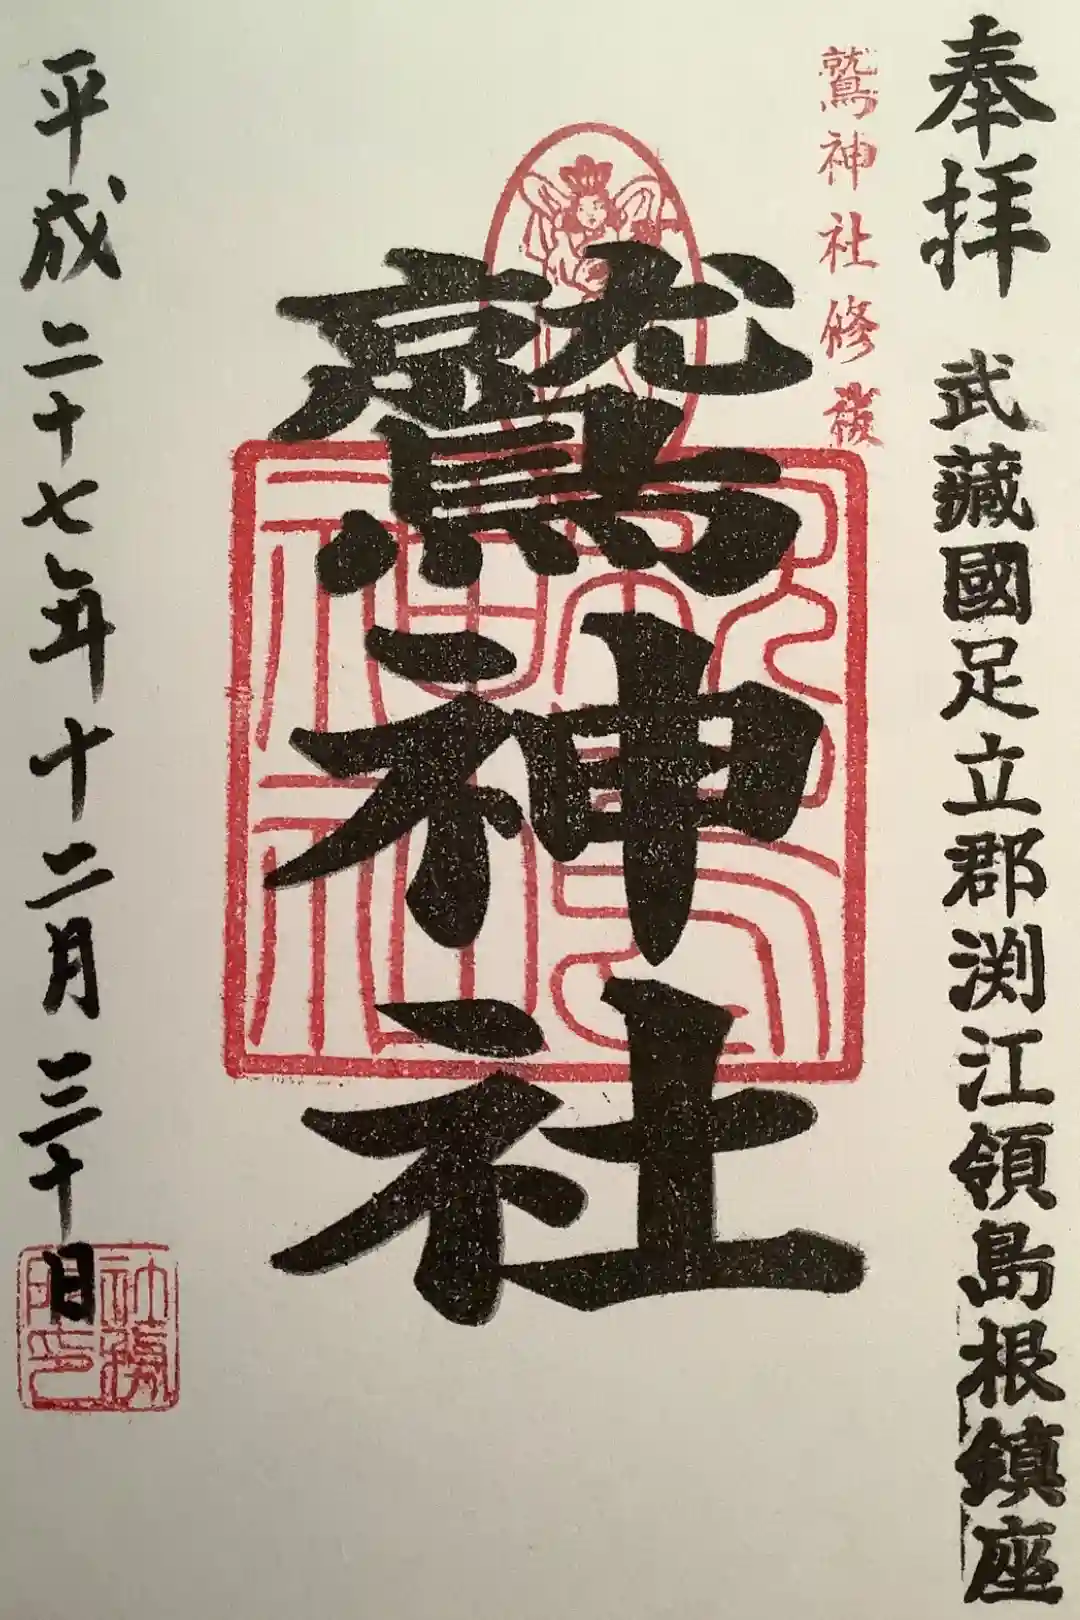 奉拝
武藏國足立郡渕江領島根鎮座
鷲神社修祓
鷲神社
平成二十七年十二月三十日
社務所印